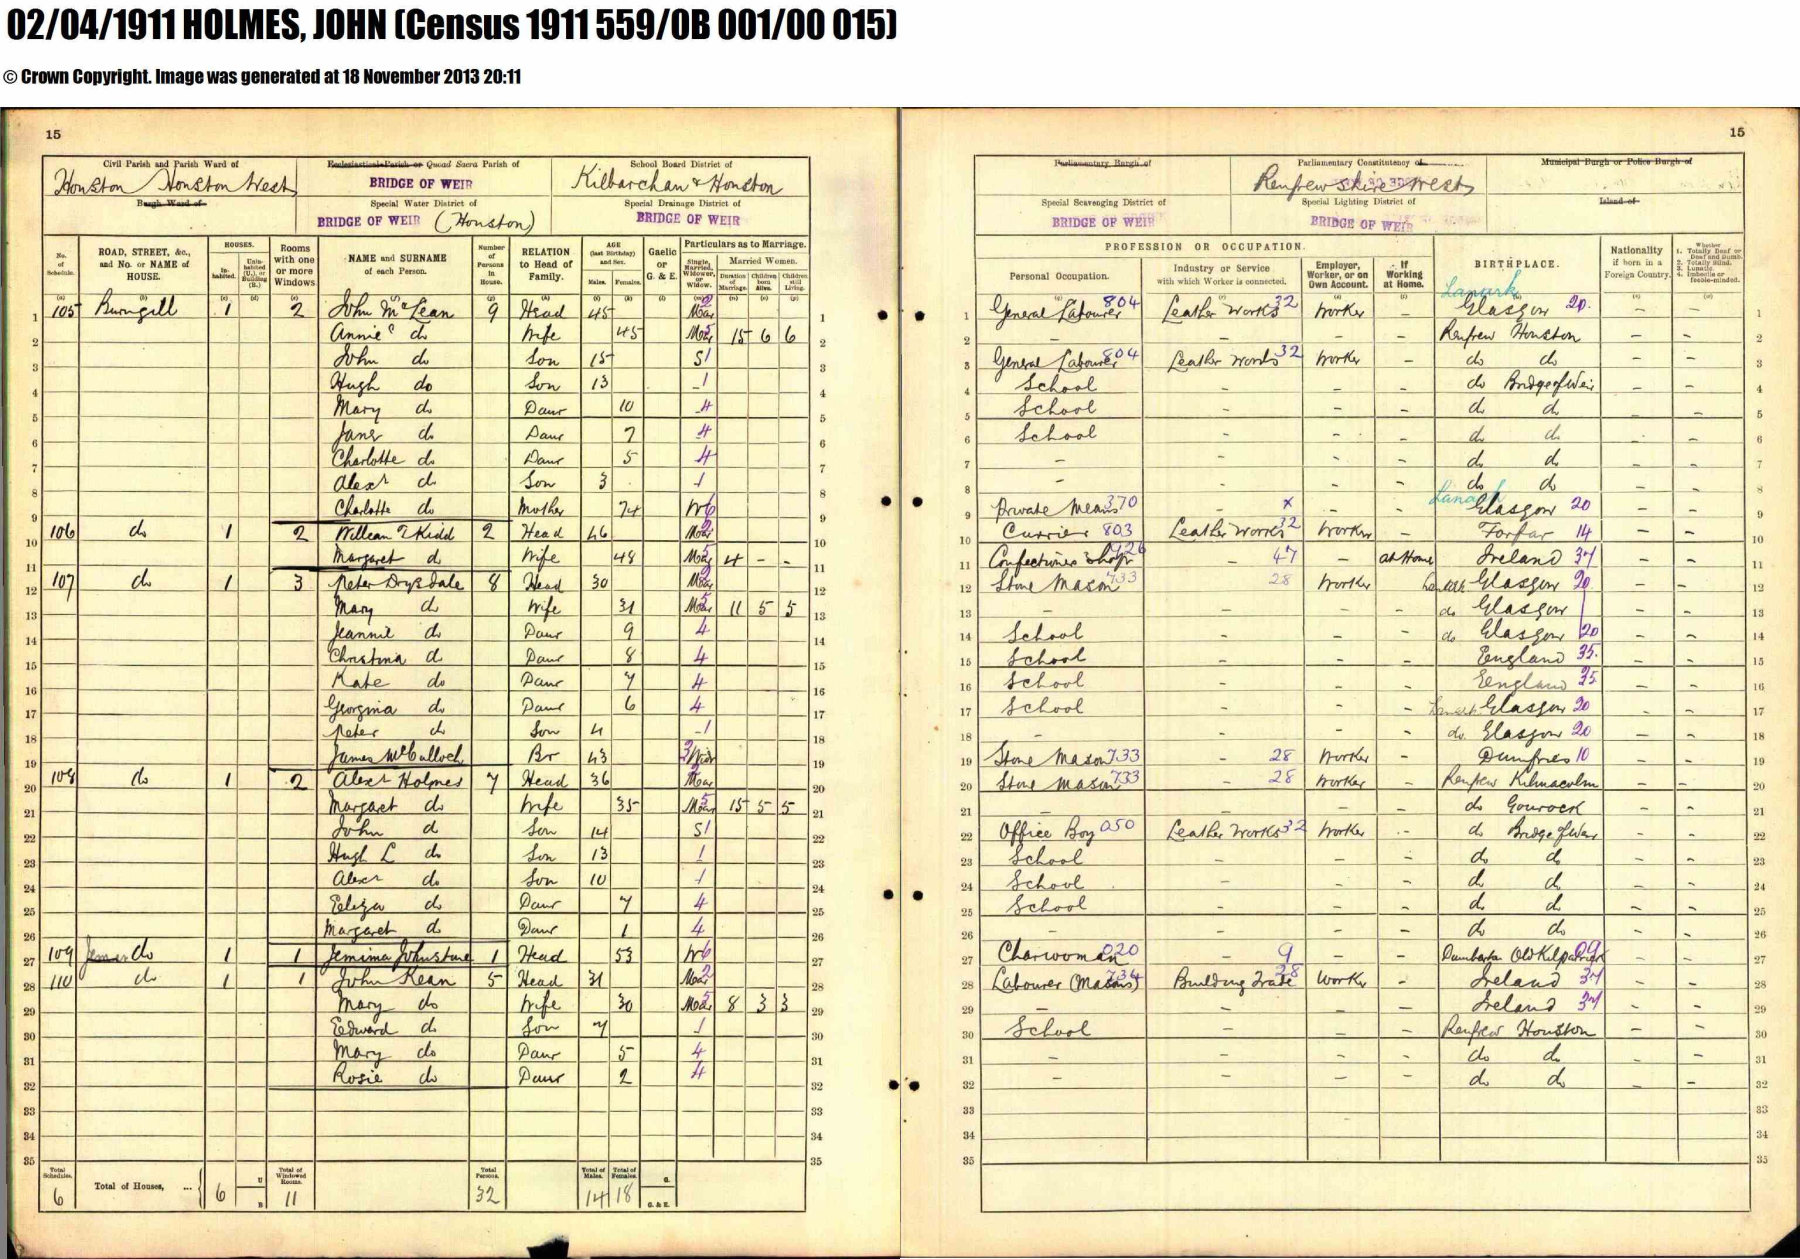 02/04/1911 HOLMES, JOHN (Census 1911 559/0B 001/00 015)
© Crown Copyright. Image was generated at 18 November 2013 20:11
15
Civil Parish and Parish Ward of
Houston Houston West
Burgh Ward of
Ecclesiastical Parish or Quoad Sacra Parish of
BRIDGE OF WEIR
Special Water District of
BRIDGE OF WEIR (Houston)
School Board District of
Kilbarchan & Houston
Special Drainage District of
BRIDGE OF WEIR
No. of Schedule. ROAD, STREET, &c., and No. or NAME of HOUSE. HOUSES. Inhabited. Uninhabited (U.) or Building (B.) Rooms with one or more Windows NAME and SURNAME of each Person. Number of Persons in House. RELATION to Head of Family. AGE (last Birthday) and Sex. Males. Females. Gaelic or G. & E. Particulars as to Marriage. Single, Married, Widower, or Widow. Married Women. Duration of Marriage. Children born Alive. Children still Living.
1 105 Burngill 1 2 John McLean 9 Head 45 Mar 2
2 Annie do Wife 45 Mar 5 15 6 6
3 John do Son 15 S 1
4 Hugh do Son 13 1
5 Mary do Daur 10 4
6 Jane do Daur 7 4
7 Charlotte do Daur 5 4
8 Alexr do Son 3 1
9 Charlotte do Mother 74 W 6
10 106 do 1 2 William T Kidd 2 Head 46 Mar 2
11 Margaret do Wife 48 Mar 5 4 - -
12 107 do 1 3 Peter Drysdale 8 Head 30 Mar 2
13 Mary do Wife 31 Mar 5 11 5 5
14 Jeannie do Daur 9 4
15 Christina do Daur 8 4
16 Kate do Daur 7 4
17 Georgina do Daur 6 4
18 Peter do Son 4 1
19 James McCulloch Br 43 3 Widr
20 108 do 1 2 Alexr Holmes 7 Head 36 Mar 2
21 Margaret do Wife 35 Mar 5 15 5 5
22 John do Son 14 S 1
23 Hugh L do Son 13 1
24 Alexr do Son 10 1
25 Eliza do Daur 7 4
26 Margaret do Daur 1 4
27 109 do 1 1 Jemima Johnstone 1 Head 53 W 6
28 110 do 1 1 John Kean 5 Head 31 Mar 2
29 Mary do Wife 30 Mar 5 8 3 3
30 Edward do Son 7 1
31 Mary do Daur 5 4
32 Rosie do Daur 2 4
33
34
35
Total Schedules. 6 Total of Houses, ... 6 U B Total of Windowed Rooms. 11 Total Persons. 32 Total of Males. 14 Total of Females. 18 G. G. & E.
15
Parliamentary Burgh of
Special Scavenging District of
BRIDGE OF WEIR
Parliamentary Constituency of
Renfrewshire West
Special Lighting District of
BRIDGE OF WEIR
Municipal Burgh or Police Burgh of
Island of
PROFESSION OR OCCUPATION. Personal Occupation. Industry or Service with which Worker is connected. Employer, Worker, or on Own Account. If Working at Home. BIRTHPLACE. Nationality if born in a Foreign Country. Whether 1. Totally Deaf or Deaf and Dumb. 2. Totally Blind. 3. Lunatic. 4. Imbecile or feeble-minded.
1 General Labourer 804 Leather Works 32 Worker - Lanark Glasgow 20 - -
2 - - - - Renfrew Houston - -
3 General Labourer 804 Leather Works 32 Worker - do do - -
4 School - - - do Bridge of Weir - -
5 School - - - do do - -
6 School - - - do do - -
7 - - - - do do - -
8 - - - - do do - -
9 Private Means 370 x - - Lanark Glasgow 20 - -
10 Currier 803 Leather Works 32 Worker - Forfar 14 - -
11 Confectioners Shop 47 - at Home Ireland 37 - -
12 Stone Mason 733 28 Worker Lanark Glasgow 20 - -
13 - - - - do Glasgow - -
14 School - - - do Glasgow 20 - -
15 School - - - England 35 - -
16 School - - - England 35 - -
17 School - - - Lanark Glasgow 20 - -
18 - - - - do Glasgow 20 - -
19 Stone Mason 733 28 Worker - Dumfries 10 - -
20 Stone Mason 733 28 Worker - Renfrew Kilmacolm - -
21 - - - - do Gourock - -
22 Office Boy 050 Leather Works 32 Worker - do Bridge of Weir - -
23 School - - - do do - -
24 School - - - do do - -
25 School - - - do do - -
26 - - - - do do - -
27 Charwoman 020 9 - - Dumbarton Old Kilpatrick 09 - -
28 Labourer (Masons) 734 Building Trade 28 Worker - Ireland 37 - -
29 - - - - Ireland 37 - -
30 School - - - Renfrew Houston - -
31 - - - - do do - -
32 - - - - do do - -
33
34
35